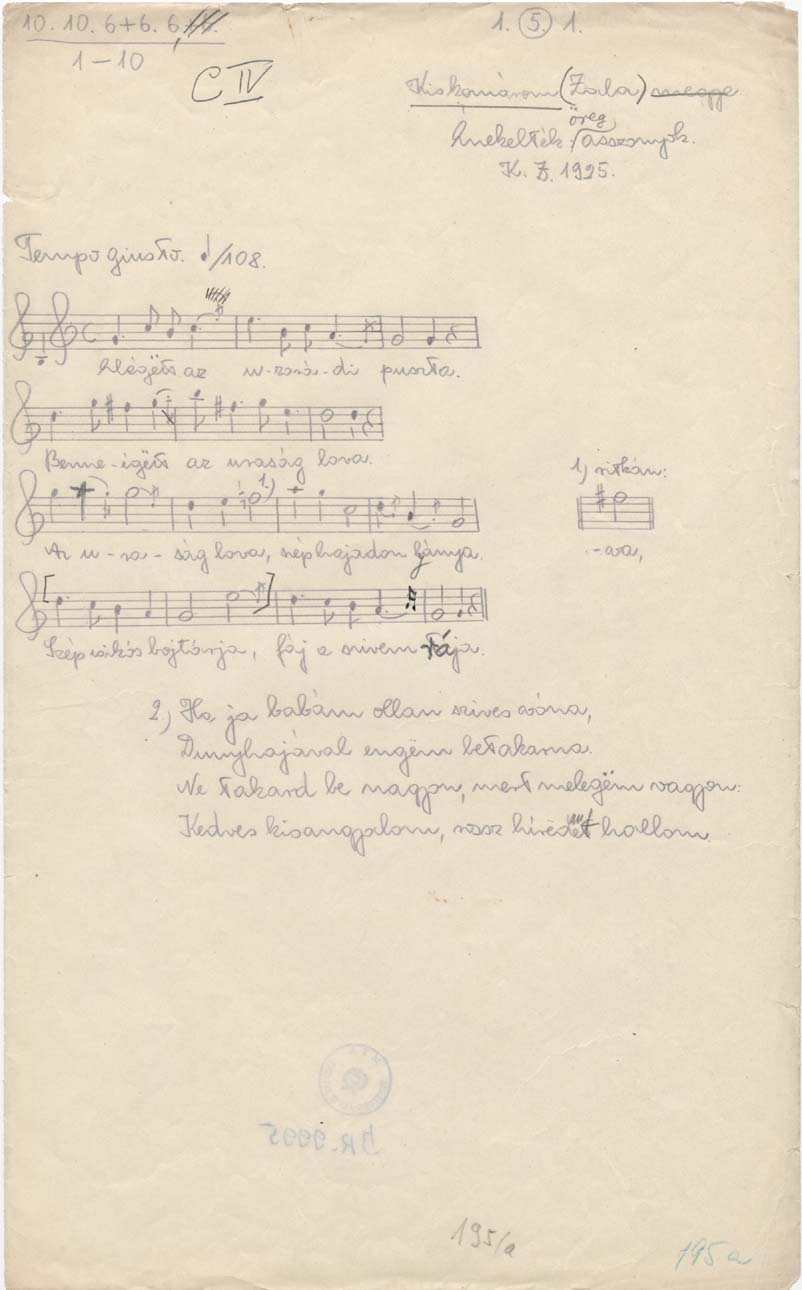 10. 10. 6+6. 6
1. 5. 1.
1–10
C IV
Kiskomárom (Zala) megye
öreg
Énekelték: asszonyok.
K. Z. 1925.
Tempo giusto. /108.
Elégëtt az u-zsrá-di puszta.
Benne-égëtt az uraság lova.
1.)
1.) ritkán:
Az u-ra-ság lova, szép hajadon jánya.
-ova,
Szép csikós bojtárja, fáj a szivem tája.
2.) Ha ja babám ollan szives vóna,
Dunyhajával engëm betakarna.
Ne takard be nagyon, mert melegëm vagyon:
Kedves kisangyalom, rossz híredet hallom.
BR. 9995
195/a
195 a